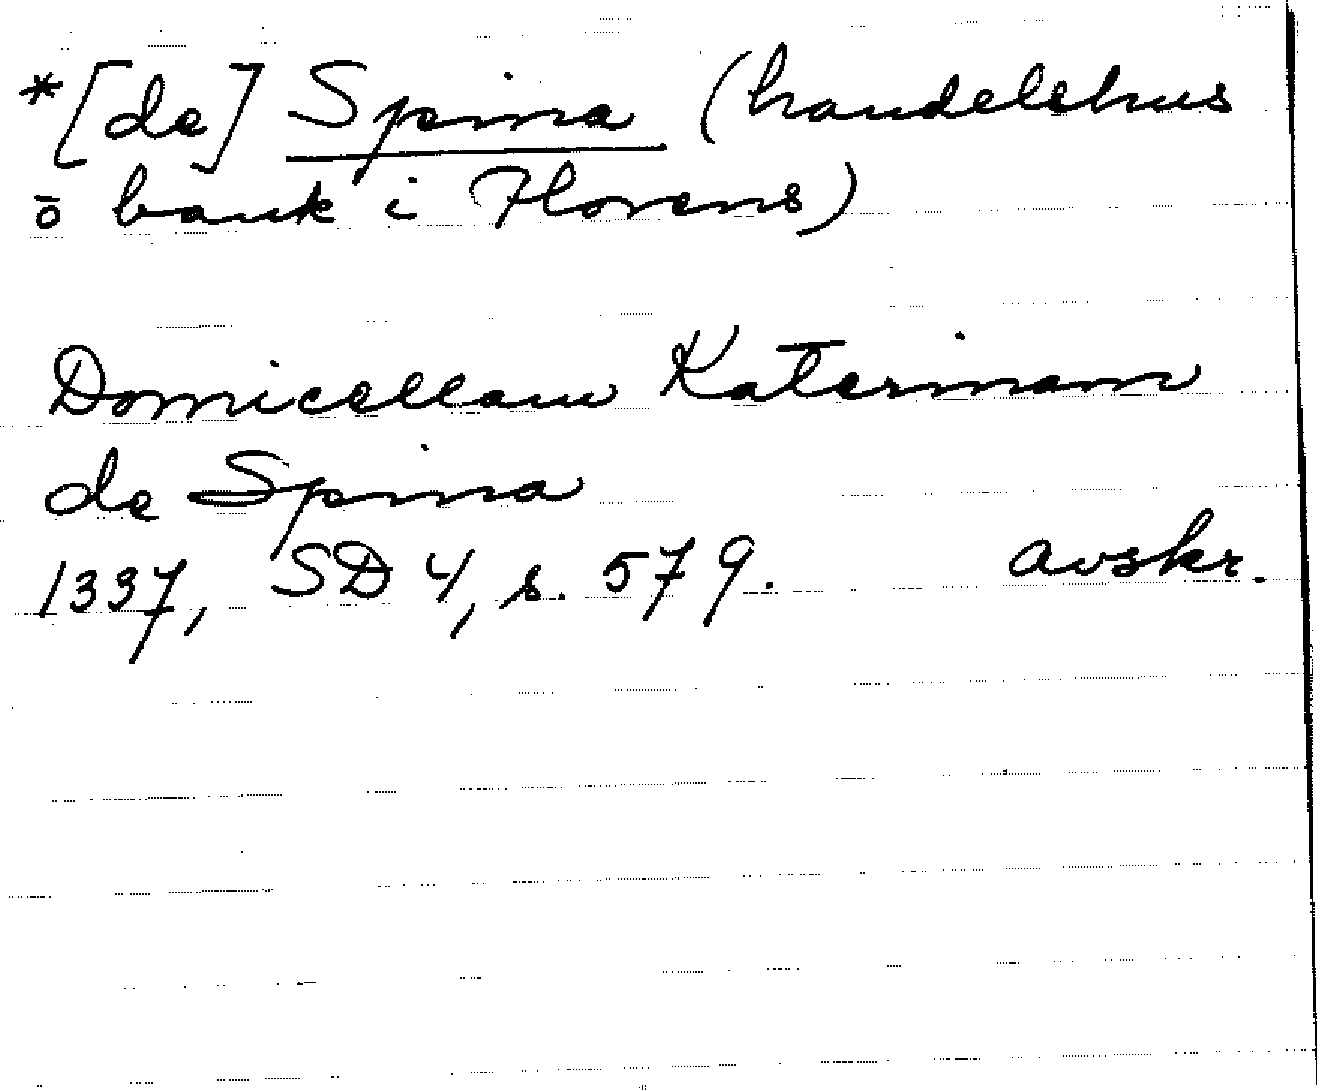 *[de] Spina (handelshus
ō bank i Florens)
Domicellam Katerinam
de Spina
1337, SD 4, s. 579. avskr.